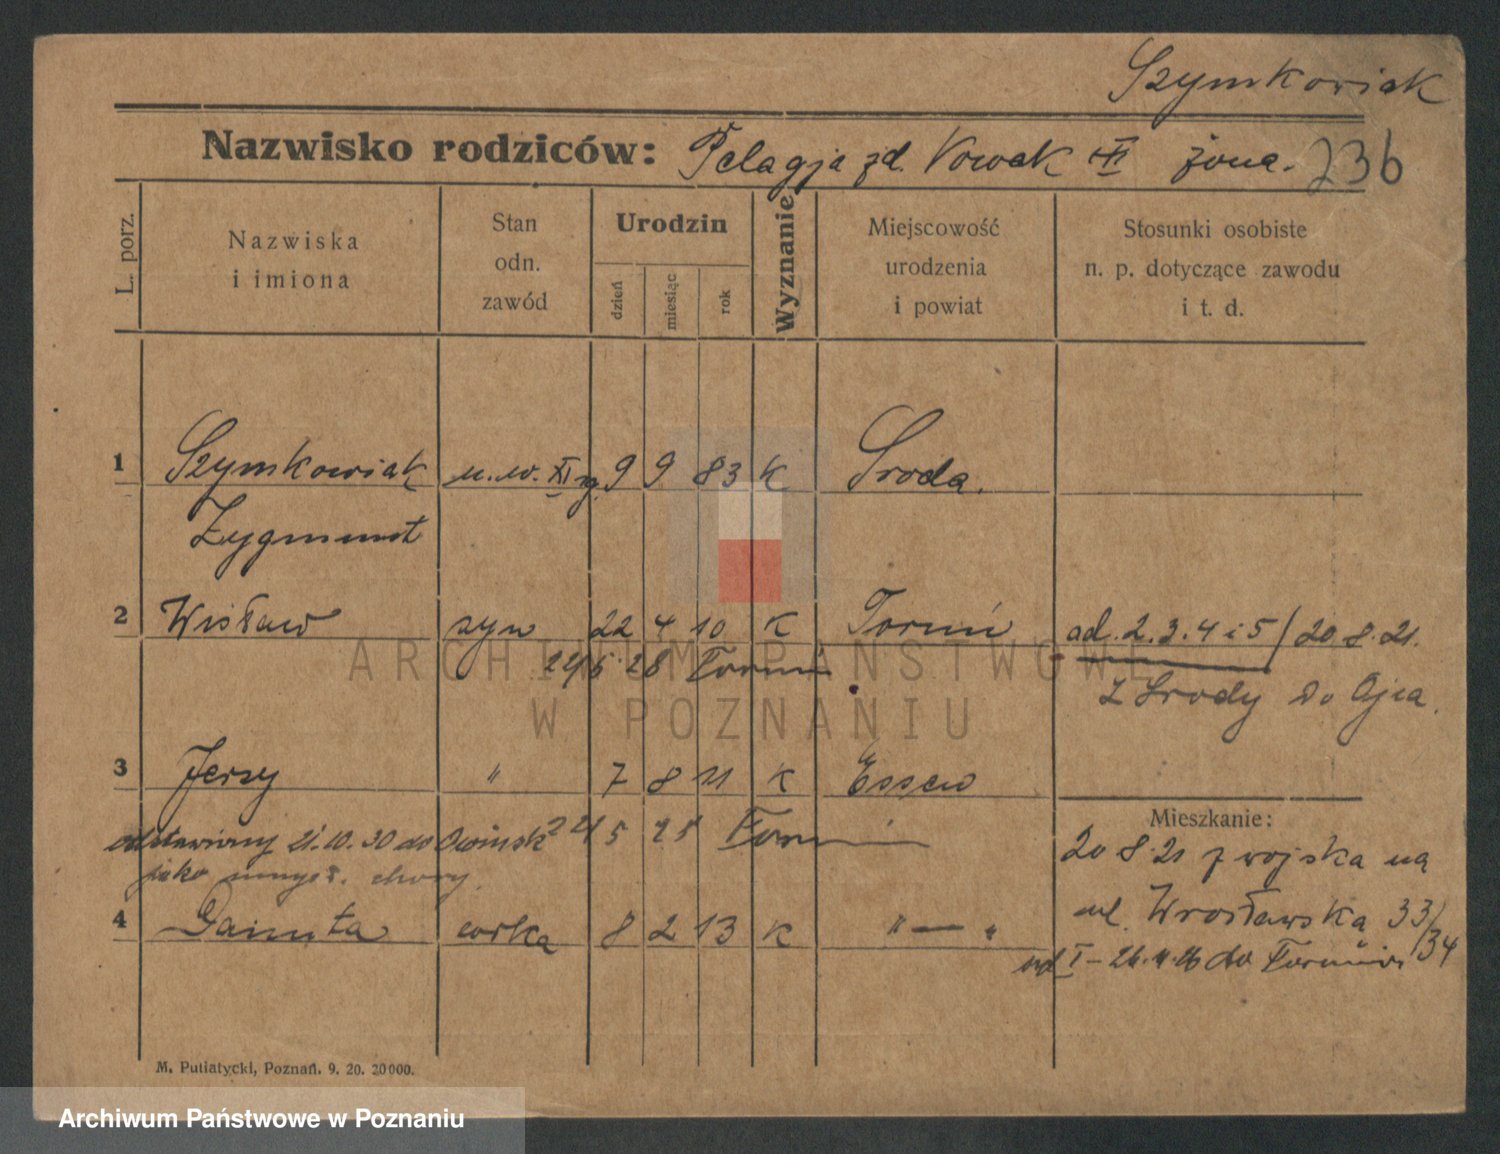 Szymkowiak
Nazwisko rodziców: Pelagja zd. Nowak III żona. 236
L. porz.
Nazwiska
i imiona
Stan
odn.
zawód
Urodzin
dzień
miesiąc
rok
Wyznanie
Miejscowość
urodzenia
i powiat
Stosunki osobiste
n. p. dotyczące zawodu
i t. d.
1 Szymkowiak u.w. XI rg. 9 9 83 K Środa.
Zygmunt
2 Wisław syn 22 4 10 K Toruń ad. 2. 3. 4 i 5 / 20. 8. 21.
22/5 28 Toruń
z Środy do Ojca.
3 Jerzy " 7 8 11 K Essen
Mieszkanie:
odstawiony 21.10.30 do Owińsk 21 5 25 Toruń
20 8 21 z wojska na
jako umysł. chory.
ul. Wrocławska 33/34
4 Danuta córka 8 2 13 K " — "
ad I – 26.4.26 do Torunia
M. Putiatycki, Poznań. 9. 20. 20000.
ARCHIWUM PAŃSTWOWE
W POZNANIU
Archiwum Państwowe w Poznaniu